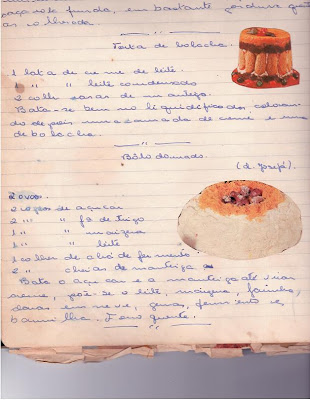 funda, em bastante gordura que
Torta de bolacha.
1 lata de creme de leite.
1 " " leite condensado
2 colh. sopas de manteiga.
Bata-se bem no liquidificador colocan-
do depois uma camada de creme e uma
de bolacha.
Bôlo dourado.
(d. Josefa).
2 ovos.
2 copos de açucar
2 " " fa de trigo
1 " " maizena
1 " " leite
1 colher de chá de fermento
2 " cheias de manteiga
Bata o açucar e a manteiga até virar
creme, põe-se o leite, maizena, farinha,
claras em neve, gemas, fermento e,
baunilha. Forno quente.